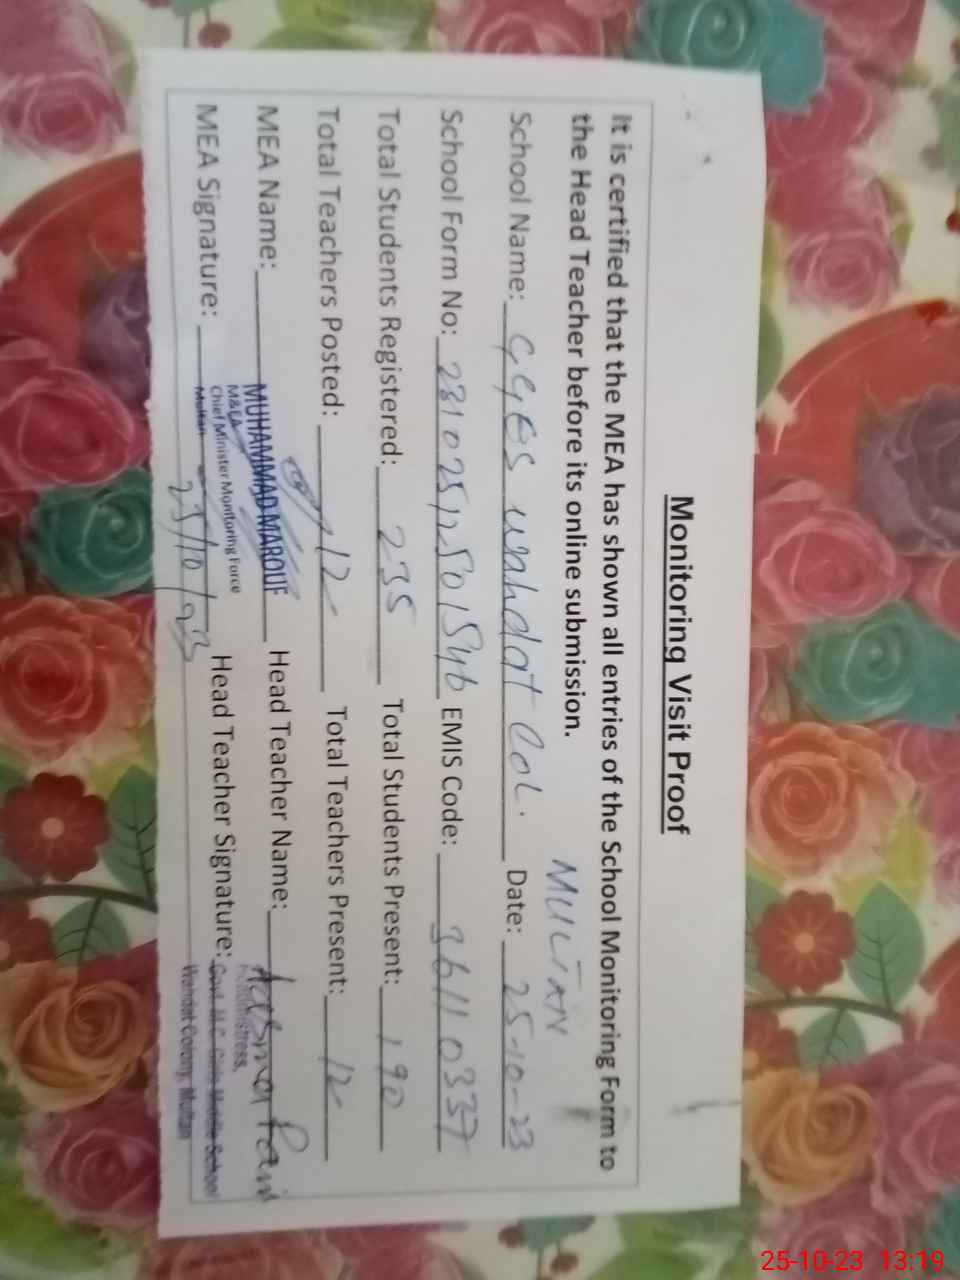 Monitoring Visit Proof
It is certified that the MEA has shown all entries of the School Monitoring Form to
the Head Teacher before its online submission.
MULTAN
School Name: GGES wahdat Col. Date: 25-10-23
School Form No: EMIS Code: 36110337
Total Students Registered: 235 Total Students Present: 190
Total Teachers Posted: 12 Total Teachers Present: 12
MEA Name: MUHAMMAD MAROUF Head Teacher Name:
M&EA
Chief Minister Monitoring Force
Multan
MEA Signature: 25/10/23 Head Teacher Signature:
Headmistress,
Govt. M.C. Girls Middle School
Wahdat Colony, Multan
25-10-23 13:19